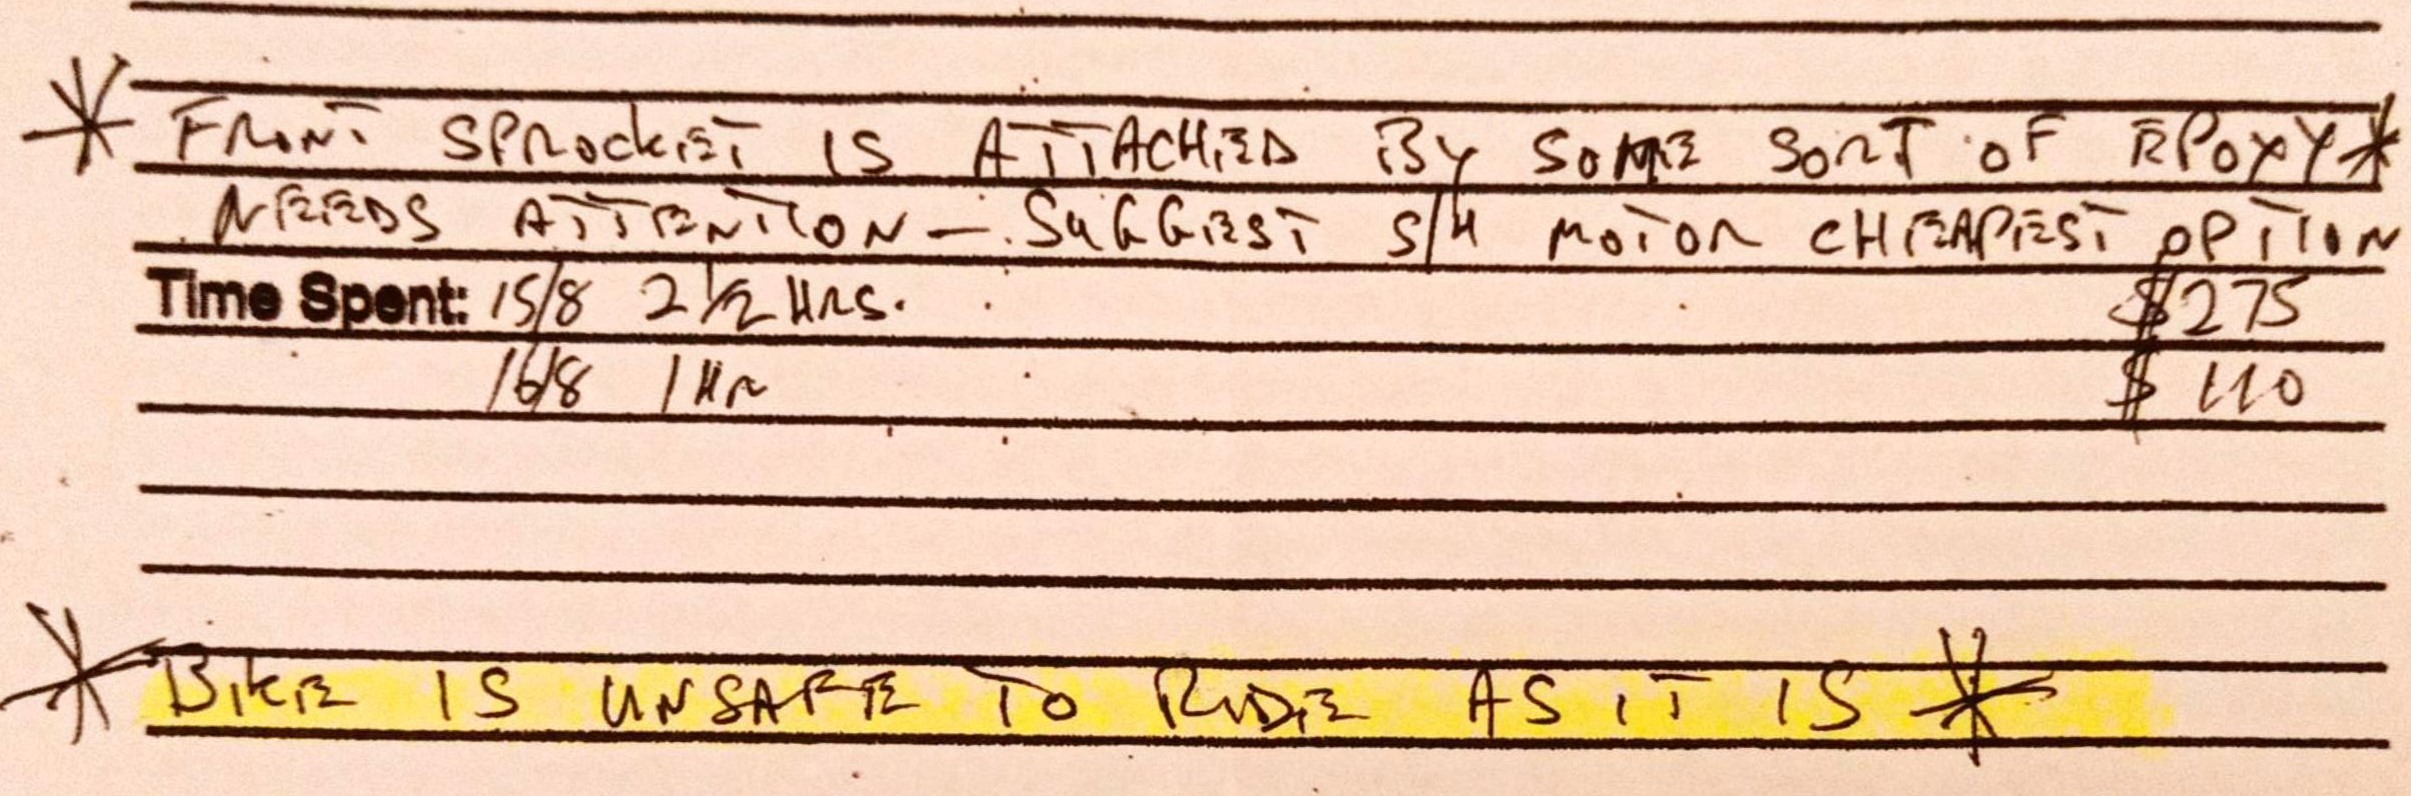 * FRONT SPROCKET IS ATTACHED BY SOME SORT OF EPOXY *
NEEDS ATTENTION - SUGGEST S/H MOTOR CHEAPEST OPTION
Time Spent: 15/8 2 1/2 HRS. $275
16/8 1 HR $ 110
* BIKE IS UNSAFE TO RIDE AS IT IS *